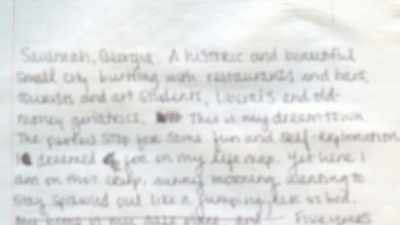 Savannah, Georgia. A historic and beautiful
small city bursting with restaurants and bars,
tourists and art students, liberals and old-
money geriatrics. This is my dream town.
The perfect stop for some fun and self-exploration
I deemed for on my life map. Yet here I
am on this crisp, sunny morning, wanting to
stay sprawled out like a jumping jack in bed.
and Five years